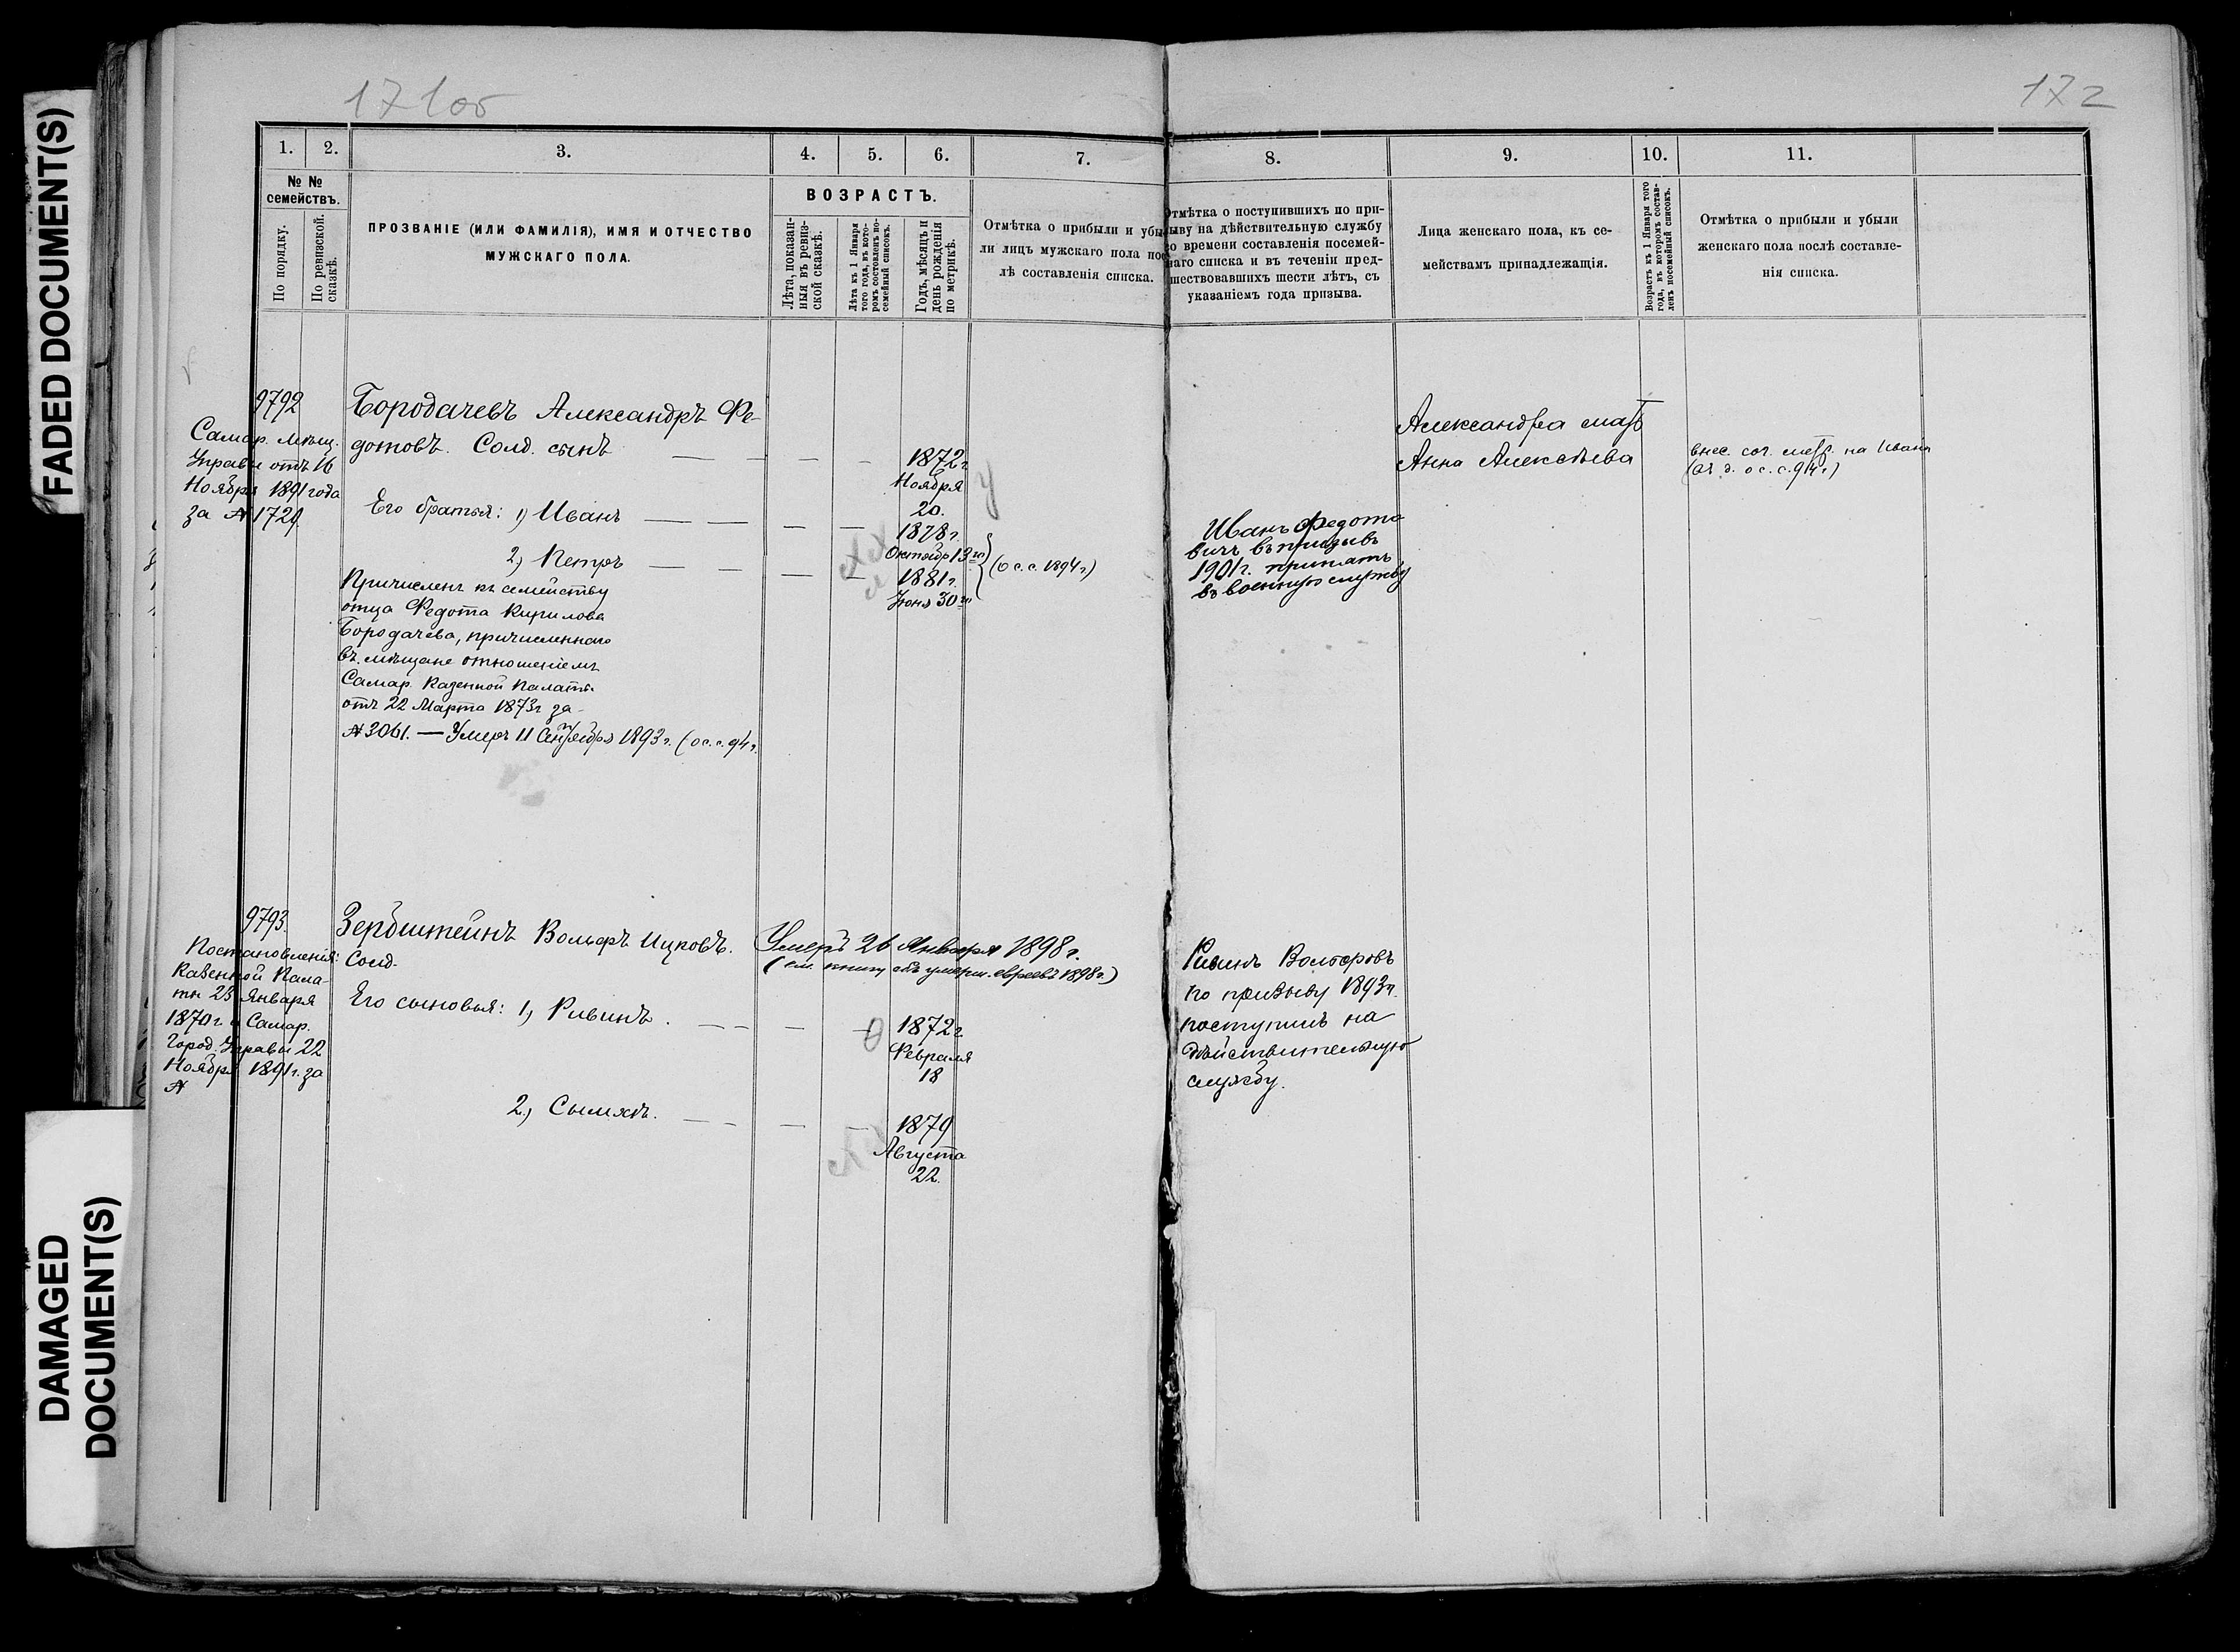 FADED DOCUMENT(S)
DAMAGED
DOCUMENT(S)
171об
172
1.
2.
3.
4.
5.
6.
7.
8.
9.
10.
11.
№ №
семействъ.
По порядку.
По ревизской
сказкѣ.
ПРОЗВАНІЕ (ИЛИ ФАМИЛІЯ), ИМЯ И ОТЧЕСТВО
МУЖСКАГО ПОЛА.
ВОЗРАСТЪ.
Лѣта, показан-
ныя въ ревиз-
ской сказкѣ.
Лѣта къ 1 Января
того года, въ кото-
ромъ составленъ по-
семейный списокъ.
Годъ, мѣсяцъ и
день рожденія
по метрикѣ.
Отмѣтка о прибыли и убы
ли лицъ мужскаго пола пос
лѣ составленія списка.
Отмѣтка о поступившихъ по при-
ыву на дѣйствительную службу
о времени составленія посемей-
наго списка и въ теченіи пред-
шествовавшихъ шести лѣтъ, съ
указаніемъ года призыва.
Лица женскаго пола, къ се-
мействамъ принадлежащія.
Возрастъ къ 1 Января того
года, въ которомъ состав-
ленъ посемейный списокъ.
Отмѣтка о прибыли и убыли
женскаго пола послѣ составле-
нія списка.
9792
Самар. Мѣщ.
Управы отъ 16
Ноября 1891 года
за № 1729
Бородачевъ Александръ Фе-
дотовъ. Солд. сынъ
1872 г.
Ноября
20.
Его братья: 1) Иванъ
1878 г.
Октябр 13го
2) Петръ
1881 г.
Іюня 30го
(о с. с. 1894 г.)
Причисленъ къ семейству
отца Федота Кирилова
Бородачева, причисленнаго
въ мѣщане отношеніемъ
Самар. Казенной Палаты
отъ 22 Марта 1873 г за
№ 3061. — Умеръ 11 Сентября 1893 г. (о с. с. 94 г.
Иванъ Федото
вичъ въ призывъ
1901 г. принятъ
въ военную службу
Александра мать
Анна Алексѣева
внес. сог. метр. на Ивана
(о с. с. 94 г)
9793.
Постановленія:
Казенной Пала-
ты 23 Января
1870 г. и Самар.
Город. Управы 22
Ноября 1891 г. за
№
Зербштейнъ Вольфъ Ицковъ.
Солд.
Умеръ 26 Января 1898 г.
(см. книгу объ умерш. евреевъ 1898 г.)
Его сыновья: 1) Ривинъ.
1872 г
Февраля
18
2) Сымхъ.
1879
Августа
22.
Ривинъ Вольфовъ
по призыву 1893 г.
поступилъ на
дѣйствительную
службу.